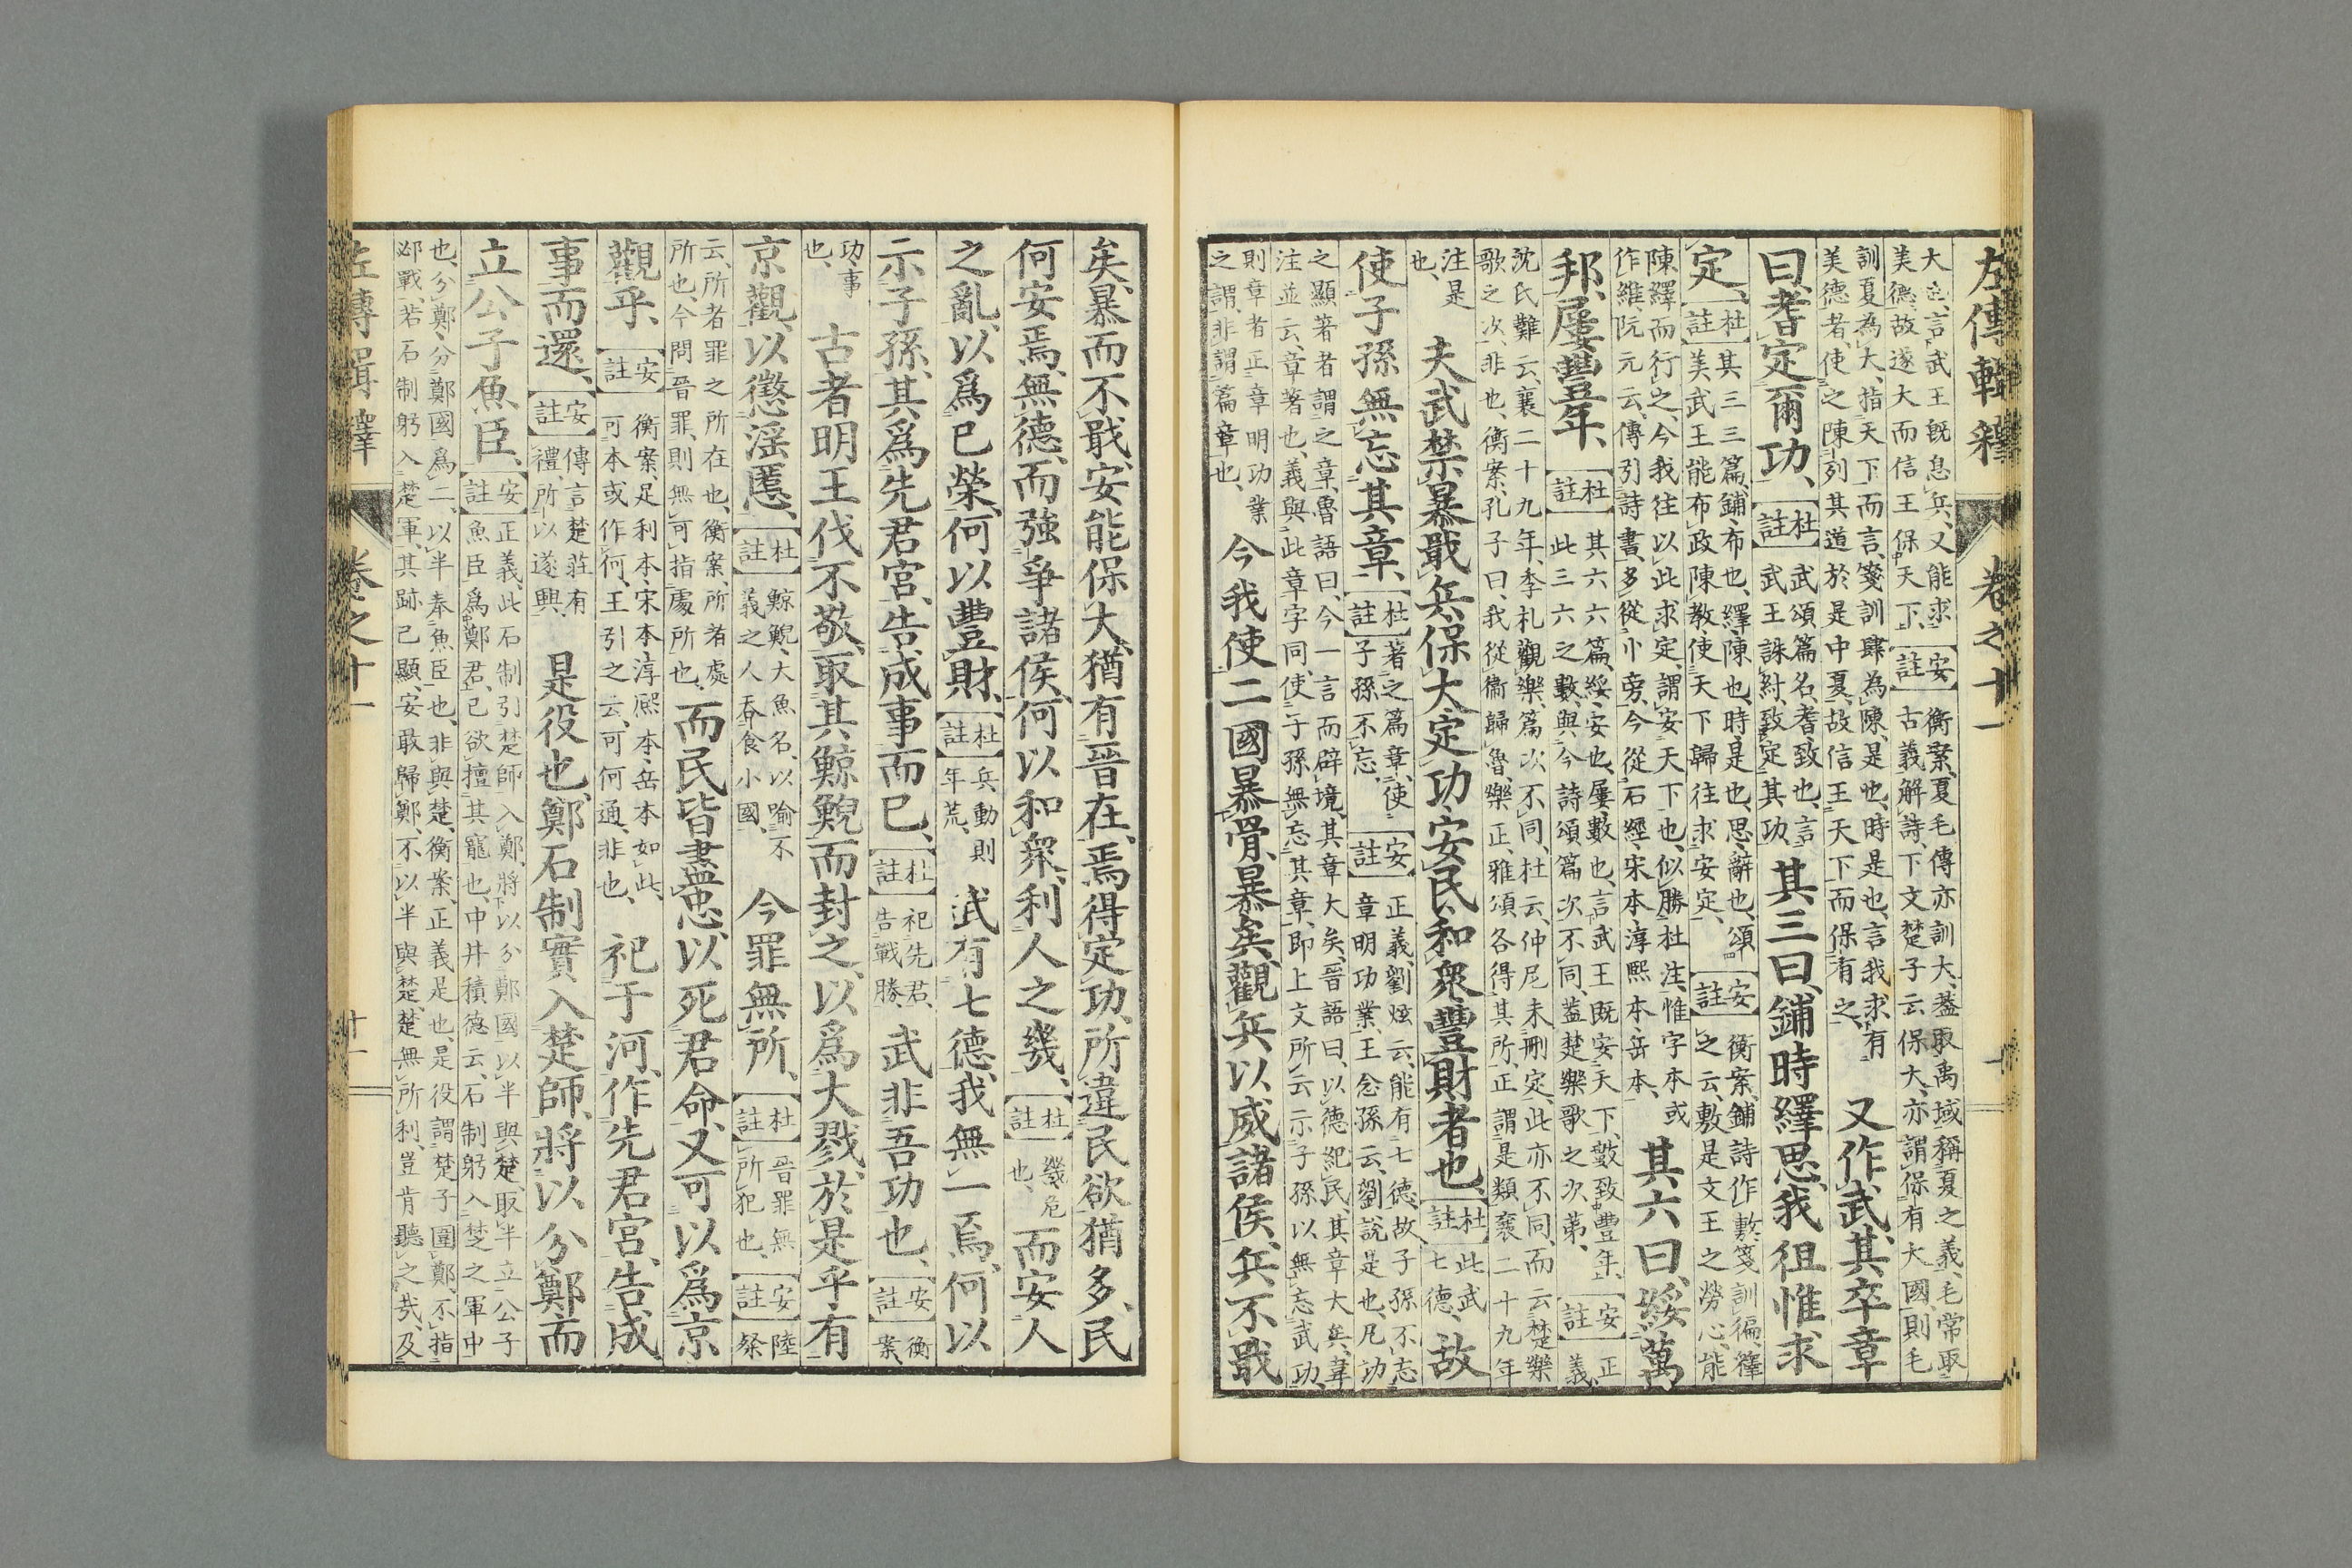 左傳輯釋 卷之十一
大也、言武王既息兵、又能求
美德、故遂大而信王保天下、【安註】衡案、夏毛傳亦訓大、葢取禹域稱夏之義、毛常取
古義解詩、下文楚子云保大、亦謂保有大國、則毛
訓夏為大、指天下而言、箋訓肆為陳、是也、時是也、言我求有
美德者、使之陳列其道於是中夏、故信王天下而保有之、又作武、其卒章
曰、耆定爾功、【杜註】武頌篇名、耆致也、言
武王誅紂、致定其功、其三曰、鋪時繹思、我徂惟求
定、【杜註】其三三篇、鋪布也、繹陳也、時是也、思辭也、頌
美武王能布政陳教、使天下歸往求安定、【安註】衡案、鋪詩作敷、箋訓徧、繹
之云、敷是文王之勞心、能
陳繹而行之、今我往以此求定、謂安天下也、似勝杜注、惟字本或
作維、阮元云、傳引詩書、多從忄旁、今從石經宋本淳熙本岳本、其六曰、綏萬
邦、屢豐年、【杜註】其六六篇、綏安也、屢數也、言武王既安天下、數致豐年、
此三六之數、與今詩頌篇次不同、葢楚樂歌之次第、【安註】正
義、
沈氏難云、襄二十九年、季札觀樂、篇次不同、杜云、仲尼未刪定、此亦不同、而云楚樂
歌之次、非也、衡案、孔子曰、我從衞歸魯、樂正、雅頌各得其所、正謂是類、襄二十九年
注是
也、夫武禁暴戢兵、保大、定功、安民、和衆、豐財者也、【杜註】此武
七德、故
使子孫無忘其章、【杜註】著之篇章、使
子孫不忘、【安註】正義、劉炫云、能有七德、故子孫不忘
章明功業、王念孫云、劉說是也、凡功
之顯著者謂之章、魯語曰、今一言而辟境、其章大矣、晉語曰、以德紀民、其章大矣、韋
注並云、章著也、義與此章字同、使子孫無忘其章、即上文所云示子孫以無忘武功、
則章者正章明功業
之謂、非謂篇章也、今我使二國暴骨、暴矣、觀兵以威諸侯、兵不戢
矣、暴而不戢、安能保大、猶有晉在、焉得定功、所違民欲猶多、民
何安焉、無德而強爭諸侯、何以和衆、利人之幾、【杜註】幾危
也、而安人
之亂、以爲己榮、何以豐財、【杜註】兵動則
年荒、武有七德、我無一焉、何以
示子孫、其爲先君宮、告成事而已、【杜註】祀先君、
告戰勝、武非吾功也、【安註】衡
案、
功、事
也、古者明王伐不敬、取其鯨鯢而封之、以爲大戮、於是乎有
京觀、以懲淫慝、【杜註】鯨鯢、大魚名、以喻不
義之人吞食小國、今罪無所、【杜註】晉罪無
所犯也、【安註】陸
粲
云、所者罪之所在也、衡案、所者處
所也、今問晉罪、則無可指處所也、而民皆盡忠、以死君命、又可以爲京
觀乎、【安註】衡案、足利本宋本淳熙本岳本如此、
可本或作何、王引之云、可何通、非也、祀于河、作先君宮、告成
事而還、【安註】傳言楚莊有
禮、所以遂興、是役也、鄭石制實入楚師、將以分鄭、而
立公子魚臣、【安註】正義、此石制引楚師入鄭、將以分鄭國、以半與楚、取半立公子
魚臣爲鄭君、已欲擅其寵也、中井積德云、石制躬入楚之軍中
也、分鄭、分鄭國爲二、以半奉魚臣也、非與楚、衡案、正義是也、是役謂楚子圍鄭、不指
邲戰、若石制躬入楚軍、其跡已顯、安敢歸鄭、不以半與楚、楚無所利、豈肯聽之哉、及
左傳輯釋 卷之十一 十一